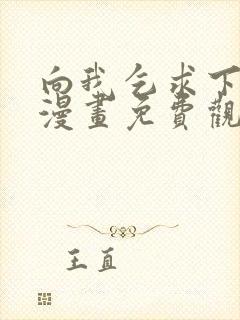 向我乞求下
漫畫免費觀
王直